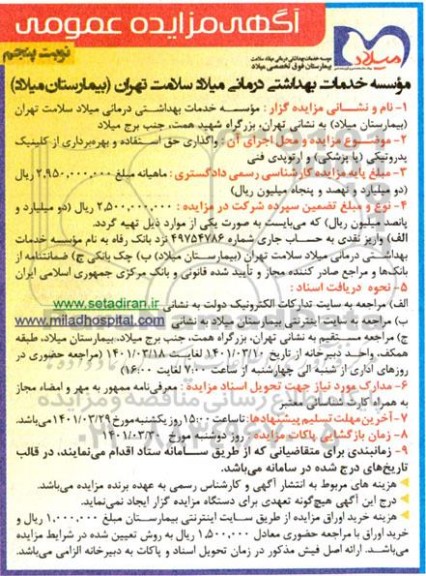 آگهی مزایده عمومی
نوبت پنجم
میلاد
موسسه خدمات بهداشتی درمانی میلاد سلامت
بیمارستان فوق تخصصی میلاد
مؤسسه خدمات بهداشتی درمانی میلاد سلامت تهران (بیمارستان میلاد)
۱- نام و نشانی مزایده گزار : مؤسسه خدمات بهداشتی درمانی میلاد سلامت تهران
(بیمارستان میلاد) به نشانی تهران، بزرگراه شهید همت، جنب برج میلاد
۲- موضوع مزایده و محل اجرای آن : واگذاری حق استفاده و بهره‌برداری از کلینیک
پدروتیکی (پا پزشکی) و ارتوپدی فنی
۳- مبلغ پایه مزایده کارشناسی رسمی دادگستری : ماهیانه مبلغ ۲,۹۵۰,۰۰۰,۰۰۰ ریال
(دو میلیارد و نهصد و پنجاه میلیون ریال)
۴- نوع و مبلغ تضمین سپرده شرکت در مزایده : ۲,۵۰۰,۰۰۰,۰۰۰ ریال (دو میلیارد و
پانصد میلیون ریال) که می‌بایست به صورت یکی از موارد ذیل تهیه گردد.
الف) واریز نقدی به حساب جاری شماره ۴۹۷۵۴۷۸۶ نزد بانک رفاه به نام مؤسسه خدمات
بهداشتی درمانی میلاد سلامت تهران (بیمارستان میلاد) ب) چک بانکی ج) ضمانتنامه از
بانک‌ها و مراجع صادر کننده مجاز و تأیید شده قانونی و بانک مرکزی جمهوری اسلامی ایران
۵- نحوه دریافت اسناد :
الف) مراجعه به سایت تدارکات الکترونیک دولت به نشانی www.setadiran.ir
ب) مراجعه به سایت اینترنتی بیمارستان میلاد به نشانی www.miladhospital.com
ج) مراجعه مستقیم به نشانی تهران، بزرگراه همت، جنب برج میلاد، بیمارستان میلاد، طبقه
همکف، واحد دبیرخانه از تاریخ ۱۴۰۱/۰۳/۱۰ لغایت ۱۴۰۱/۰۳/۱۸ (مراجعه حضوری در
روزهای اداری از شنبه الی چهارشنبه از ساعت ۷:۰۰ لغایت ۱۶:۰۰)
۶- مدارک مورد نیاز جهت تحویل اسناد مزایده : معرفی‌نامه ممهور به مهر و امضاء مجاز
به همراه کارت شناسائی معتبر
۷- آخرین مهلت تسلیم پیشنهادها: تا ساعت ۱۵:۰۰ روز یکشنبه مورخ ۱۴۰۱/۰۳/۲۹ می‌باشد.
۸- زمان بازگشایی پاکات مزایده : روز دوشنبه مورخ ۱۴۰۱/۰۳/۳۰
۹- زمانبندی برای متقاضیانی که از طریق سامانه ستاد اقدام می‌نمایند، در قالب
تاریخ‌های درج شده در سامانه می‌باشد.
هزینه های مربوط به انتشار آگهی و کارشناس رسمی به عهده برنده مزایده می‌باشد.
درج این آگهی هیچ‌گونه تعهدی برای دستگاه مزایده گزار ایجاد نمی‌نماید.
هزینه خرید اوراق مزایده از طریق سایت اینترنتی بیمارستان مبلغ ۱,۰۰۰,۰۰۰ ریال و
خرید اوراق با مراجعه حضوری معادل ۱,۵۰۰,۰۰۰ ریال به روش تعیین شده در شرایط مزایده
می‌باشد. ارائه اصل فیش مذکور در زمان تحویل اسناد و پاکات به دبیرخانه الزامی می‌باشد.